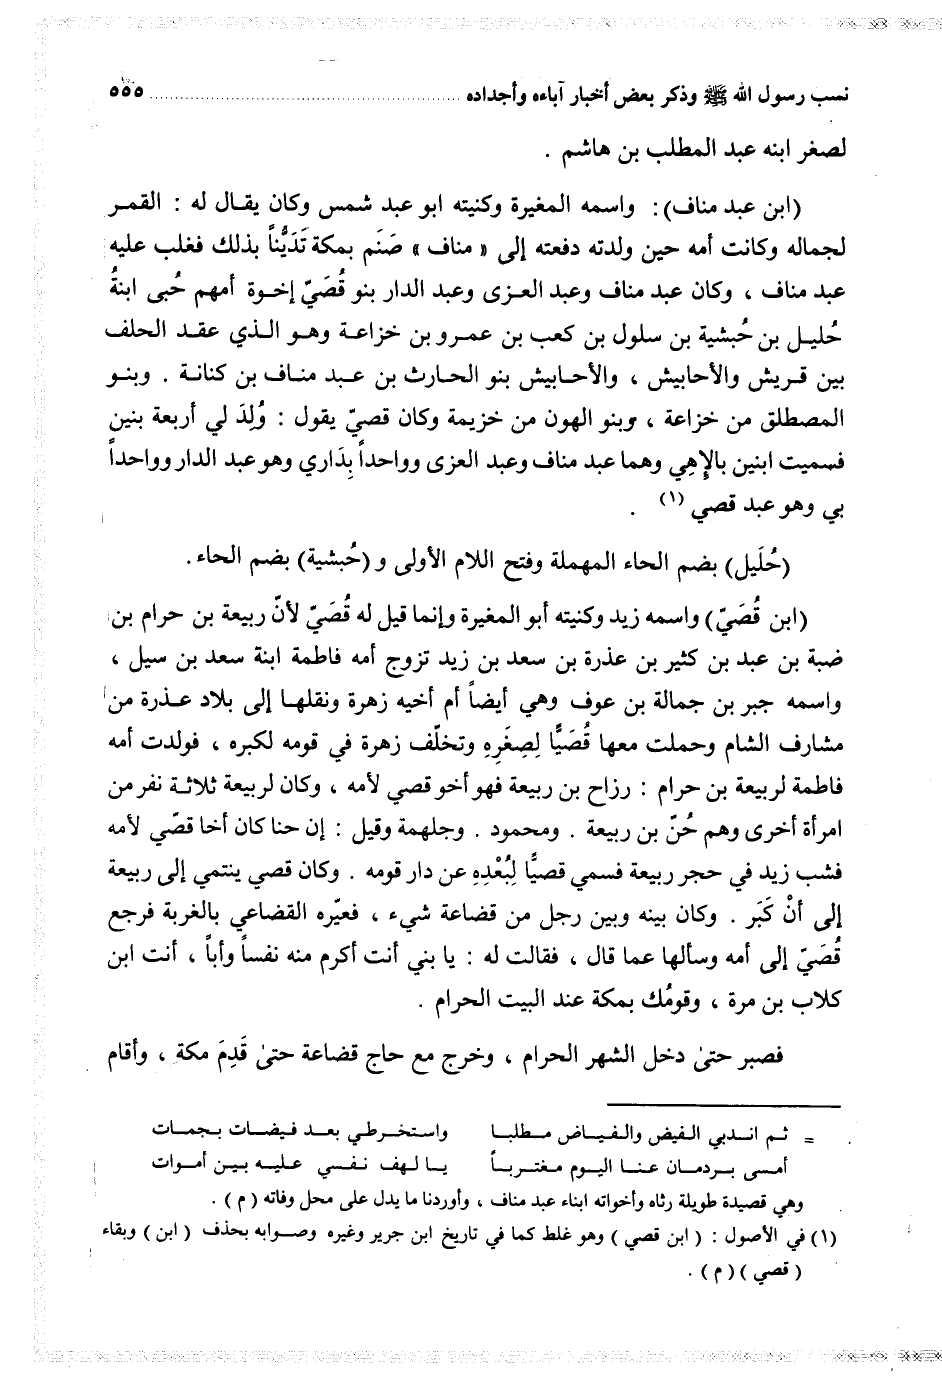 نسب رسول الله ﷺ وذكر بعض أخبار آباءه وأجداده ........................................ ٥٥٥
لصغر ابنه عبد المطلب بن هاشم .
(ابن عبد مناف): واسمه المغيرة وكنيته ابو عبد شمس وكان يقال له : القمر
لجماله وكانت أمه حين ولدته دفعته إلى « مناف » صَنَم بمكة تَدَيُّناً بذلك فغلب عليه
عبد مناف ، وكان عبد مناف وعبد العزى وعبد الدار بنو قُصَيّ إخوة أمهم حُبى ابنةُ
حُليل بن حُبشية بن سلول بن كعب بن عمرو بن خزاعة وهو الذي عقد الحلف
بين قريش والأحابيش ، والأحابيش بنو الحارث بن عبد مناف بن كنانة . وبنو
المصطلق من خزاعة ، وبنو الهون من خزيمة وكان قصيّ يقول : وُلِدَ لي أربعة بنين
فسميت ابنين بالإهي وهما عبد مناف وعبد العزى وواحداً بِدَاري وهو عبد الدار وواحداً
بي وهو عبد قصي (١) .
(حُلَيل) بضم الحاء المهملة وفتح اللام الأولى و (حُبشية) بضم الحاء.
(ابن قُصَيّ) واسمه زيد وكنيته أبو المغيرة وإنما قيل له قُصَيّ لأنّ ربيعة بن حرام بن
ضبة بن عبد بن كثير بن عذرة بن سعد بن زيد تزوج أمه فاطمة ابنة سعد بن سيل ،
واسمه جبر بن جمالة بن عوف وهي أيضاً أم أخيه زهرة ونقلها إلى بلاد عذرة من
مشارف الشام وحملت معها قُصَيًّا لِصِغَرِهِ وتخلّف زهرة في قومه لكبره ، فولدت أمه
فاطمة لربيعة بن حرام : رزاح بن ربيعة فهو أخو قصي لأمه ، وكان لربيعة ثلاثة نفر من
امرأة أخرى وهم حُنّ بن ربيعة . ومحمود . وجلهمة وقيل : إن حنا كان أخا قصّي لأمه
فشب زيد في حجر ربيعة فسمي قصيًّا لِبُعْدِهِ عن دار قومه . وكان قصي ينتمي إلى ربيعة
إلى أنْ كَبَر . وكان بينه وبين رجل من قضاعة شيء ، فعيّره القضاعي بالغربة فرجع
قُصَيّ إلى أمه وسألها عما قال ، فقالت له : يا بني أنت أكرم منه نفساً وأباً ، أنت ابن
كلاب بن مرة ، وقومُك بمكة عند البيت الحرام .
فصبر حتىٰ دخل الشهر الحرام ، وخرج مع حاج قضاعة حتىٰ قَدِمَ مكة ، وأقام
= ثم اندبي الفيض والفياض مطلبا واستخرطي بعد فيضات بجمات
أمسى بردمان عنا اليوم مغترباً يا لهف نفسي عليه بين أموات
وهي قصيدة طويلة رثاه وأخواته ابناء عبد مناف ، وأوردنا ما يدل على محل وفاته ( م ) .
(١) في الأصول : ( ابن قصي ) وهو غلط كما في تاريخ ابن جرير وغيره وصوابه بحذف ( ابن ) وبقاء
( قصي ) ( م ) .